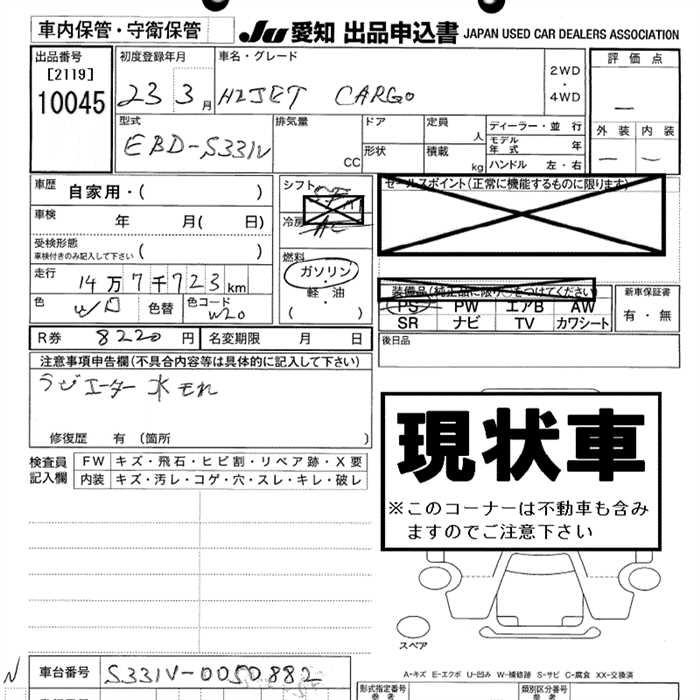 車内保管・守衛保管
JU 愛知 出品申込書 JAPAN USED CAR DEALERS ASSOCIATION
出品番号
[2119]
10045
初度登録年月
23 3月
車名・グレード
HIJET CARGO
2WD
・
4WD
評価点
—
外装 内装
— —
型式
EBD-S331V
排気量
CC
ドア
形状
定員
人
積載
kg
ディーラー・並行
モデル年式 年
ハンドル 左・右
車歴 自家用・( )
車検 年 月( 日)
受検形態
車検付きのみ記入して下さい ( )
走行 14万7千723km
色 色替 色コード
W20
シフト
冷房
燃料
ガソリン
・
軽・油
( )
セールスポイント(正常に機能するものに限ります)
装備品(純正品に限り○をつけてください)
PS PW エアB AW
SR ナビ TV カワシート
新車保証書
有・無
後日品
R券 8220円 名変期限 月 日
注意事項申告欄(不具合内容等は具体的に記入して下さい)
ラジエーター水モレ
修復歴 有 (箇所 )
検査員記入欄
FW キズ・飛石・ヒビ割・リペア跡・X要
内装 キズ・汚レ・コゲ・穴・スレ・キレ・破レ
現状車
※このコーナーは不動車も含み
ますのでご注意下さい
スペア
A-キズ E-エクボ U-凹み W-補修跡 S-サビ C-腐食 XX-交換済
N
車台番号 S331V-0050882
形式指定番号
参考
類別区分番号
参考